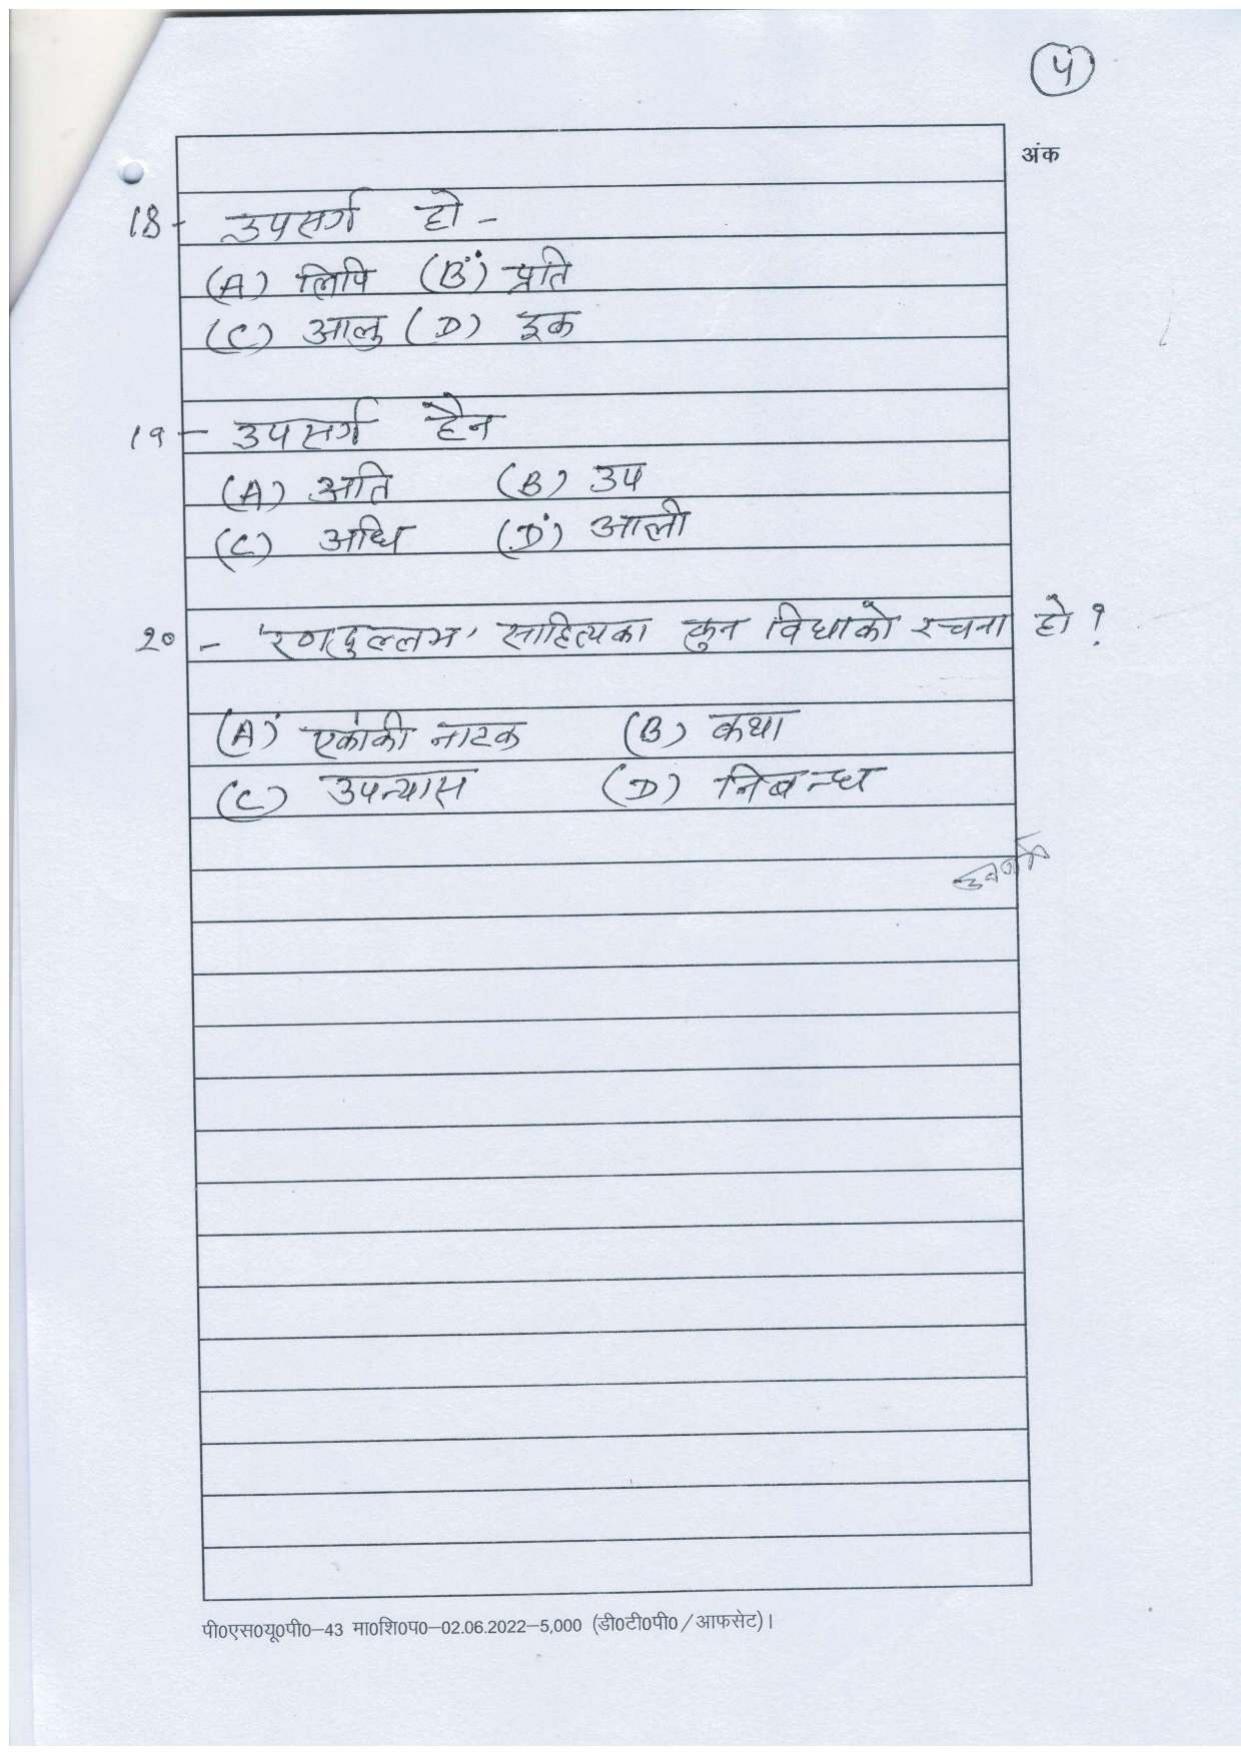 ५
अंक
18- उपसर्ग हो -
(A) लिपि (B) प्रति
(C) आलु (D) इक
19 - उपसर्ग हैन
(A) अति (B) उप
(C) अधि (D) आली
२० - 'रणदुल्लभ' साहित्यका कुन विधाको रचना हो ?
(A) एकांकी नाटक (B) कथा
(C) उपन्यास (D) निबन्ध
पी0एस0यू0पी0–43 मा0शि0प0–02.06.2022–5,000 (डी0टी0पी0/आफसेट)।